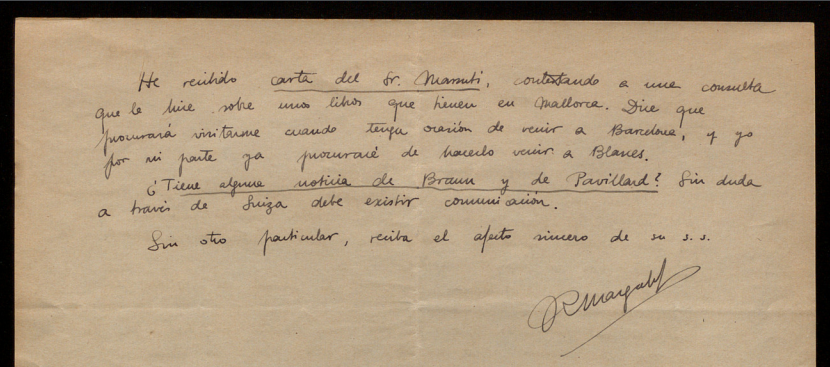 He recibido carta del Sr. Massuti, contestando a una consulta
que le hice sobre unos libros que tienen en Mallorca. Dice que
procurará visitarme cuando tenga ocasión de venir a Barcelona, y yo
por mi parte ya procuraré de hacerlo venir a Blanes.
¿Tiene alguna noticia de Braun y de Pavillard? Sin duda
a través de Suiza debe existir comunicación.
Sin otro particular, reciba el afecto sincero de su s.s.
R Margalef